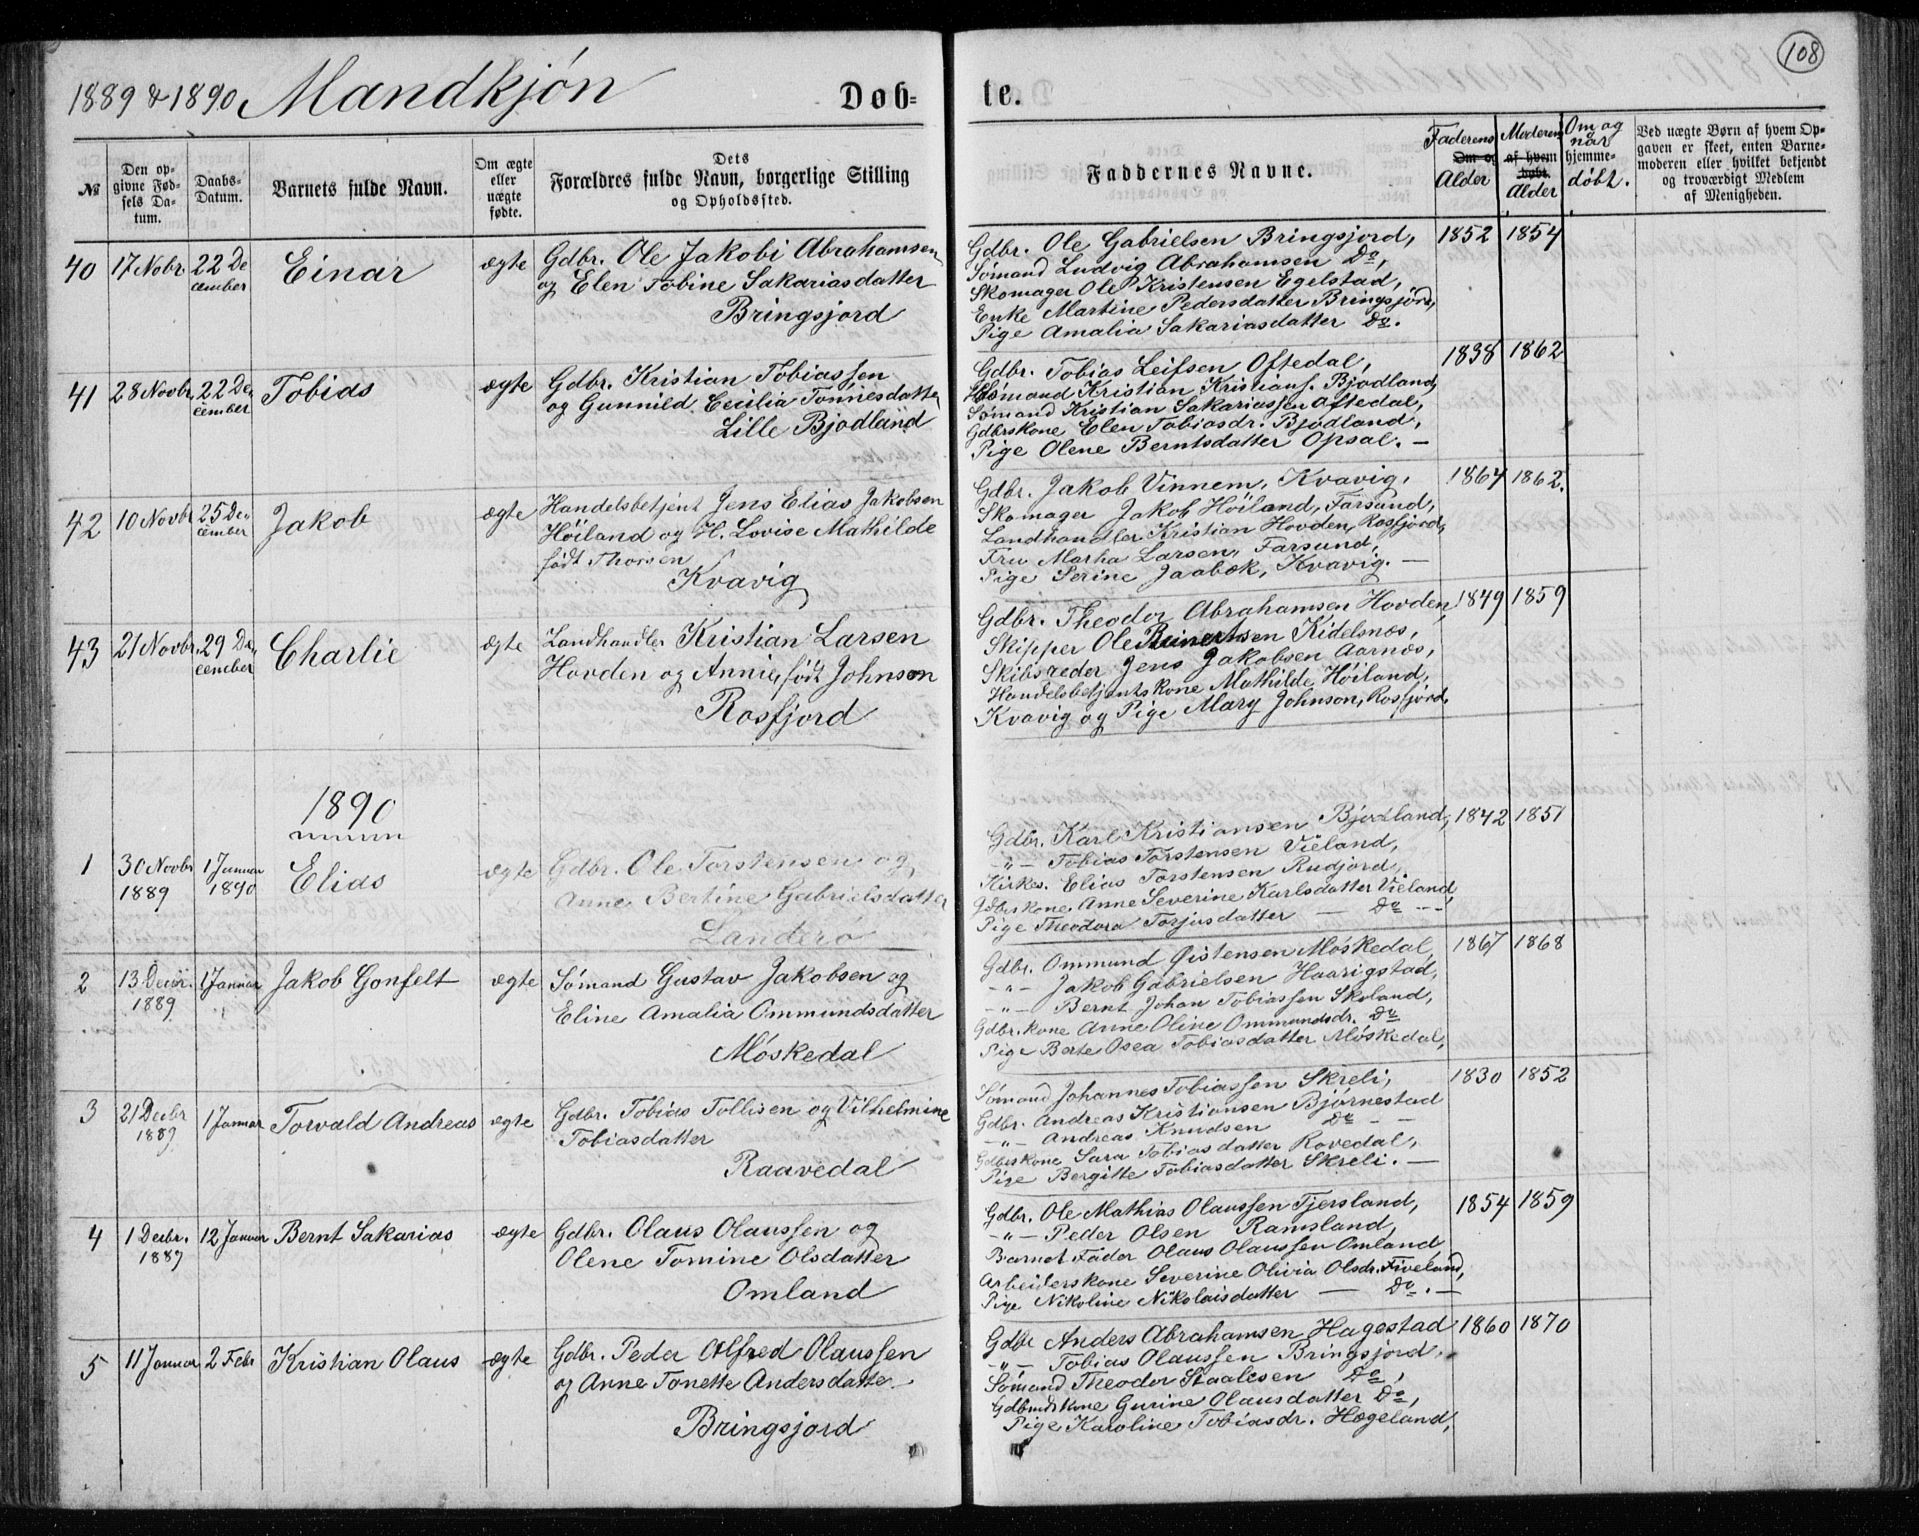 108
1889 & 1890 Mandkjøn
Døb=
te.
№
Den op-
givne Fød-
sels Da-
tum.
Daabs-
Datum.
Barnets fulde Navn.
Om ægte
eller
uægte
fødte.
Dets
Forældres fulde Navn, borgerlige Stilling
og Opholdssted.
Faddernes Navne.
Faderens
Om og
Alder
Moderens
af hvem
døbt.
Alder
Om og
når
hjemme-
døbt.
Ved uægte Børn af hvem Op-
gaven er skeet, enten Barne-
moderen eller hvilket bekjendt
og troværdigt Medlem
af Menigheden.
40 17 Nobr. 22 De
cember
Einar
ægte
Gdbr. Ole Jakobi Abrahamsen
og Elen Tobine Sakariasdatter
Bringsjord
Gdbr. Ole Gabrielsen Bringsjord,
Sømand Ludvig Abrahamsen Do,
Skomager Ole Kristensen Egelstad,
Enke Martine Pedersdatter Bringsjord,
Pige Amalia Sakariasdatter Do.
1852 1854
41 28 Novbr. 22 De-
cember
Tobias
ægte
Gdbr. Kristian Tobiassen
og Gunnild Cecilia Tønnesdatter
Lille Bjodland
Gdbr. Tobias Leifsen Oftedal,
Sømand Kristian Kristians. Bjodland,
Sømand Kristian Sakariassen Oftedal,
Gdbrskone Elen Tobiasdr. Bjodland,
Pige Olene Berntsdatter Opsal. —
1838 1862
42 10 Novbr 25 De-
cember
Jakob
ægte
Handelsbetjent Jens Elias Jakobsen
Høiland og H. Lovise Mathilde
født Thorsen
Kvavig
Gdbr. Jakob Vinnem, Kvavig,
Skomager Jakob Høiland, Farsund,
Landhandler Kristian Hovden, Rosfjord,
Fru Martha Larsen, Farsund,
Pige Serine Jaabæk, Kvavig. —
1864 1862.
43 21 Novbr. 29 De-
cember
Charlie
ægte
Landhandler Kristian Larsen
Hovden og Annie, født Johnson
Rosfjord
Gdbr. Theodor Abrahamsen Hovden,
Skipper Ole Reinertsen Kidelsnæs,
Skibsreder Jens Jakobsen Aarnæs,
Handelsbetjentskone Mathilde Høiland,
Kvavig og Pige Mary Johnson, Rosfjord.
1849 1859
1890
1 30 Novbr
1889
1 Januar
1890
Elias
ægte
Gdbr. Ole Torstensen og
Anne Bertine Gabrielsdatter
Landerø
Gdbr. Karl Kristiansen Bjodland,
-"- Tobias Torstensen Vieland,
Kirkes. Elias Torstensen Rudjord,
Gdbrskone Anne Severine Karlsdatter Vieland
Pige Theodora Torjusdatter — Do —
1842 1851
2 13 Decbr.
1889
1 Januar
"
Jakob Gonfelt
ægte
Sømand Gustav Jakobsen og
Eline Amalia Ommundsdatter
Møskedal
Gdbr. Ommund Øistensen Møskedal,
-"- Jakob Gabrielsen Haarigstad,
-"- Bernt Johan Tobiassen Skoland,
Gdbr.kone Anne Oline Ommundsdr. Do
Pige Berte Osea Tobiasdatter Møskedal,
1867 1868
3 21 Decbr
1889
1 Januar
Torvald Andreas
ægte
Gdbr. Tobias Tollisen og Vilhelmine
Tobiasdatter
Raavedal
Sømand Johannes Tobiassen Skreli,
Gdbr. Andreas Kristiansen Bjørnestad
-"- Andreas Knudsen Do - -
Gdbrskone Sara Tobiasdatter Rovedal,
Pige Bergitte Tobiasdatter Skreli. —
1830 1852
4 1 Decbr.
1889
12 Januar
Bernt Sakarias
ægte
Gdbr. Olaus Olaussen og
Olene Tomine Olsdatter
Omland
Gdbr. Ole Mathias Olaussen Tjersland,
-"- Peder Olsen Ramsland,
Barnet Fader Olaus Olaussen Omland
Arbeiderskone Severine Olivia Olsdr. Fiveland,
Pige Nikoline Nikolaisdatter — Do. —
1854 1859
5 11 Januar 2 Febr
Kristian Olaus
ægte
Gdbr. Peder Alfred Olaussen
og Anne Tonette Andersdatter
Bringsjord
Gdbr Anders Abrahamsen Hagestad
-"- Tobias Olaussen Bringsjord,
Sømand Theodor Staalesen Do,
Gdbrudskone Gurine Olausdatter Do,
Pige Karoline Tobiasdr. Hægeland,
1860 1870